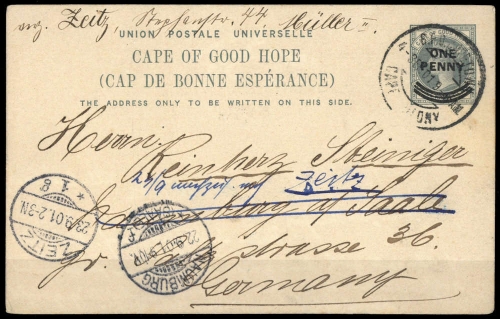 Zeitz, Stephanstr. 44. Müller II.
UNION POSTALE UNIVERSELLE
CAPE OF GOOD HOPE
(CAP DE BONNE ESPÉRANCE)
THE ADDRESS ONLY TO BE WRITTEN ON THIS SIDE.
ONE
PENNY
Herrn
Reinherz Steiniger
21/9 Zeitz
Naumburg a/ Saale
Gr. strasse 36.
Germany
ZEITZ
23/9.01.2-3N
* 1 g
NAUMBURG